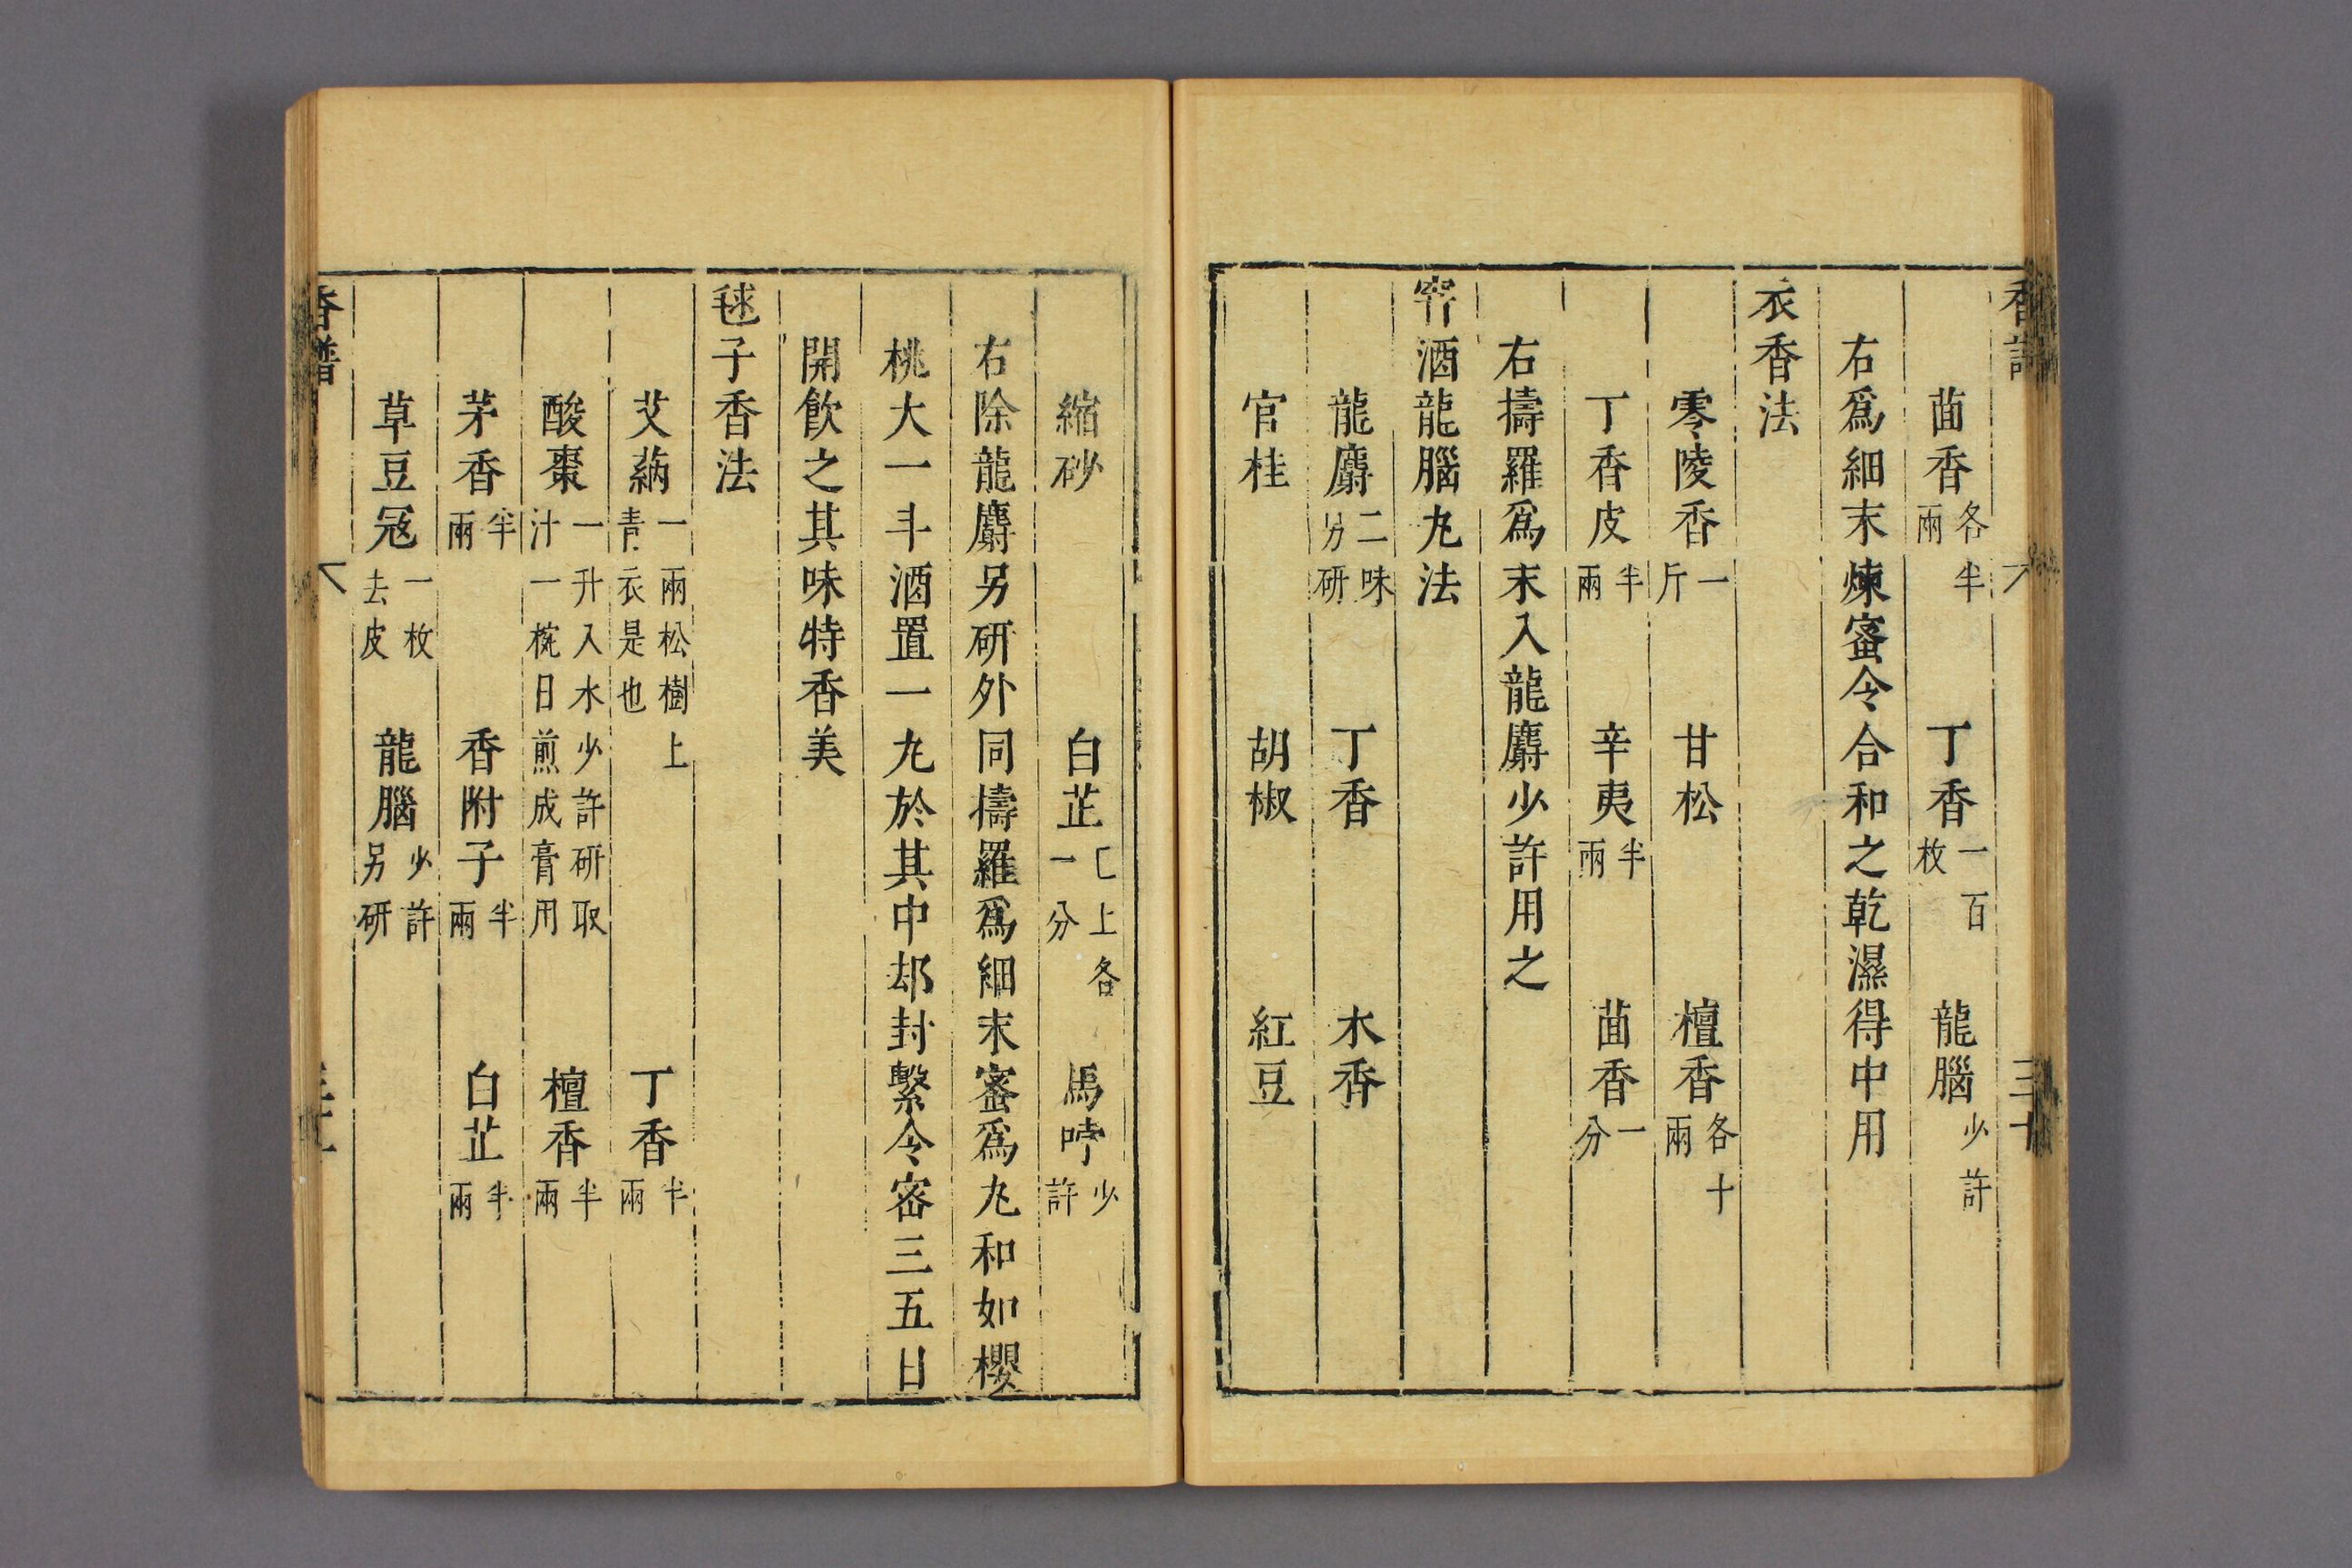 茴香各半兩 丁香一百枚 龍腦少許
右爲細末煉蜜令合和之乾濕得中用
衣香法
零陵香一斤 甘松 檀香各十兩
丁香皮半兩 辛夷半兩 茴香一分
右擣羅爲末入龍麝少許用之
窨酒龍腦丸法
龍麝二味另研 丁香 木香
官桂 胡椒 紅豆
縮砂 白芷已上各一分 馬哱少許
右除龍麝另研外同擣羅爲細末蜜爲丸和如櫻
桃大一斗酒置一丸於其中却封繫令密三五日
開飲之其味特香美
毬子香法
艾蒳一兩松樹上青衣是也 丁香半兩
酸棗一升入水少許研取汁一椀日煎成膏用 檀香半兩
茅香半兩 香附子半兩 白芷半兩
草豆冦一枚去皮 龍腦少許另研
香譜